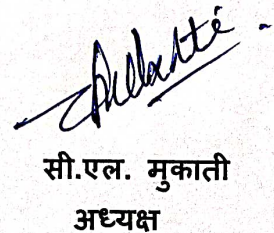 सी.एल. मुकाती
अध्यक्ष